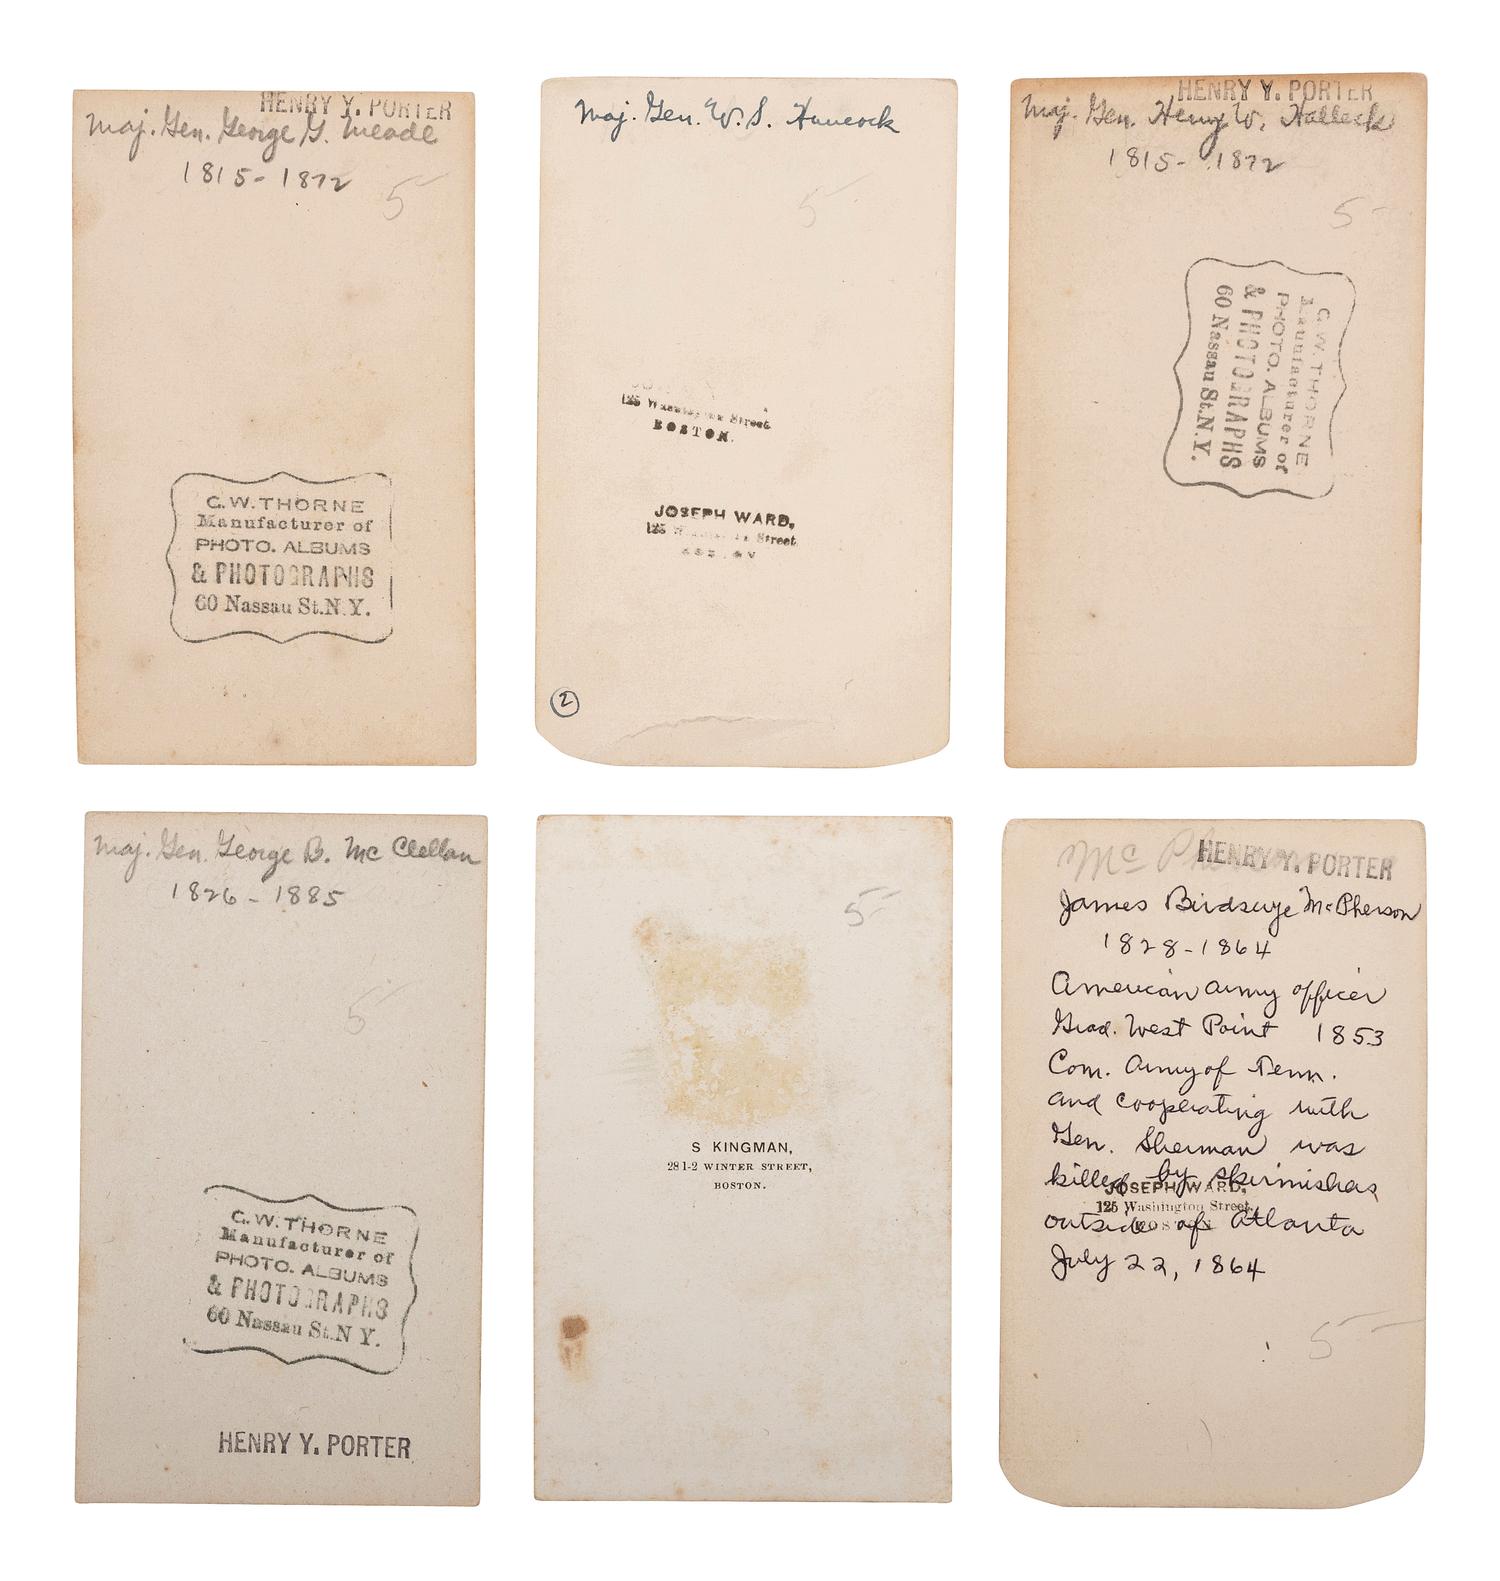 HENRY Y. PORTER
Maj. Gen. George G. Meade
1815-1872
5-
G.W. THORNE
Manufacturer of
PHOTO. ALBUMS
& PHOTOGRAPHS
60 Nassau St. N.Y.
Maj. Gen. W. S. Hancock
5-
125 Washington Street
BOSTON.
JOSEPH WARD,
125 Washington Street
BOSTON
2
HENRY Y. PORTER
Maj. Gen. Henry W. Halleck
1815-1872
5-
G.W. THORNE
Manufacturer of
PHOTO. ALBUMS
& PHOTOGRAPHS
60 Nassau St. N.Y.
Maj. Gen. George B. McClellan
1826-1885
5-
G.W. THORNE
Manufacturer of
PHOTO. ALBUMS
& PHOTOGRAPHS
60 Nassau St. N.Y.
HENRY Y. PORTER
5-
S KINGMAN,
28 1-2 WINTER STREET,
BOSTON.
HENRY Y. PORTER
James Birdseye McPherson
1828-1864
American army officer
Grad. West Point 1853
Com. Army of Tenn.
and cooperating with
Gen. Sherman was
killed by skirmishas
JOSEPH WARD,
125 Washington Street,
BOSTON
outside of Atlanta
July 22, 1864
5-